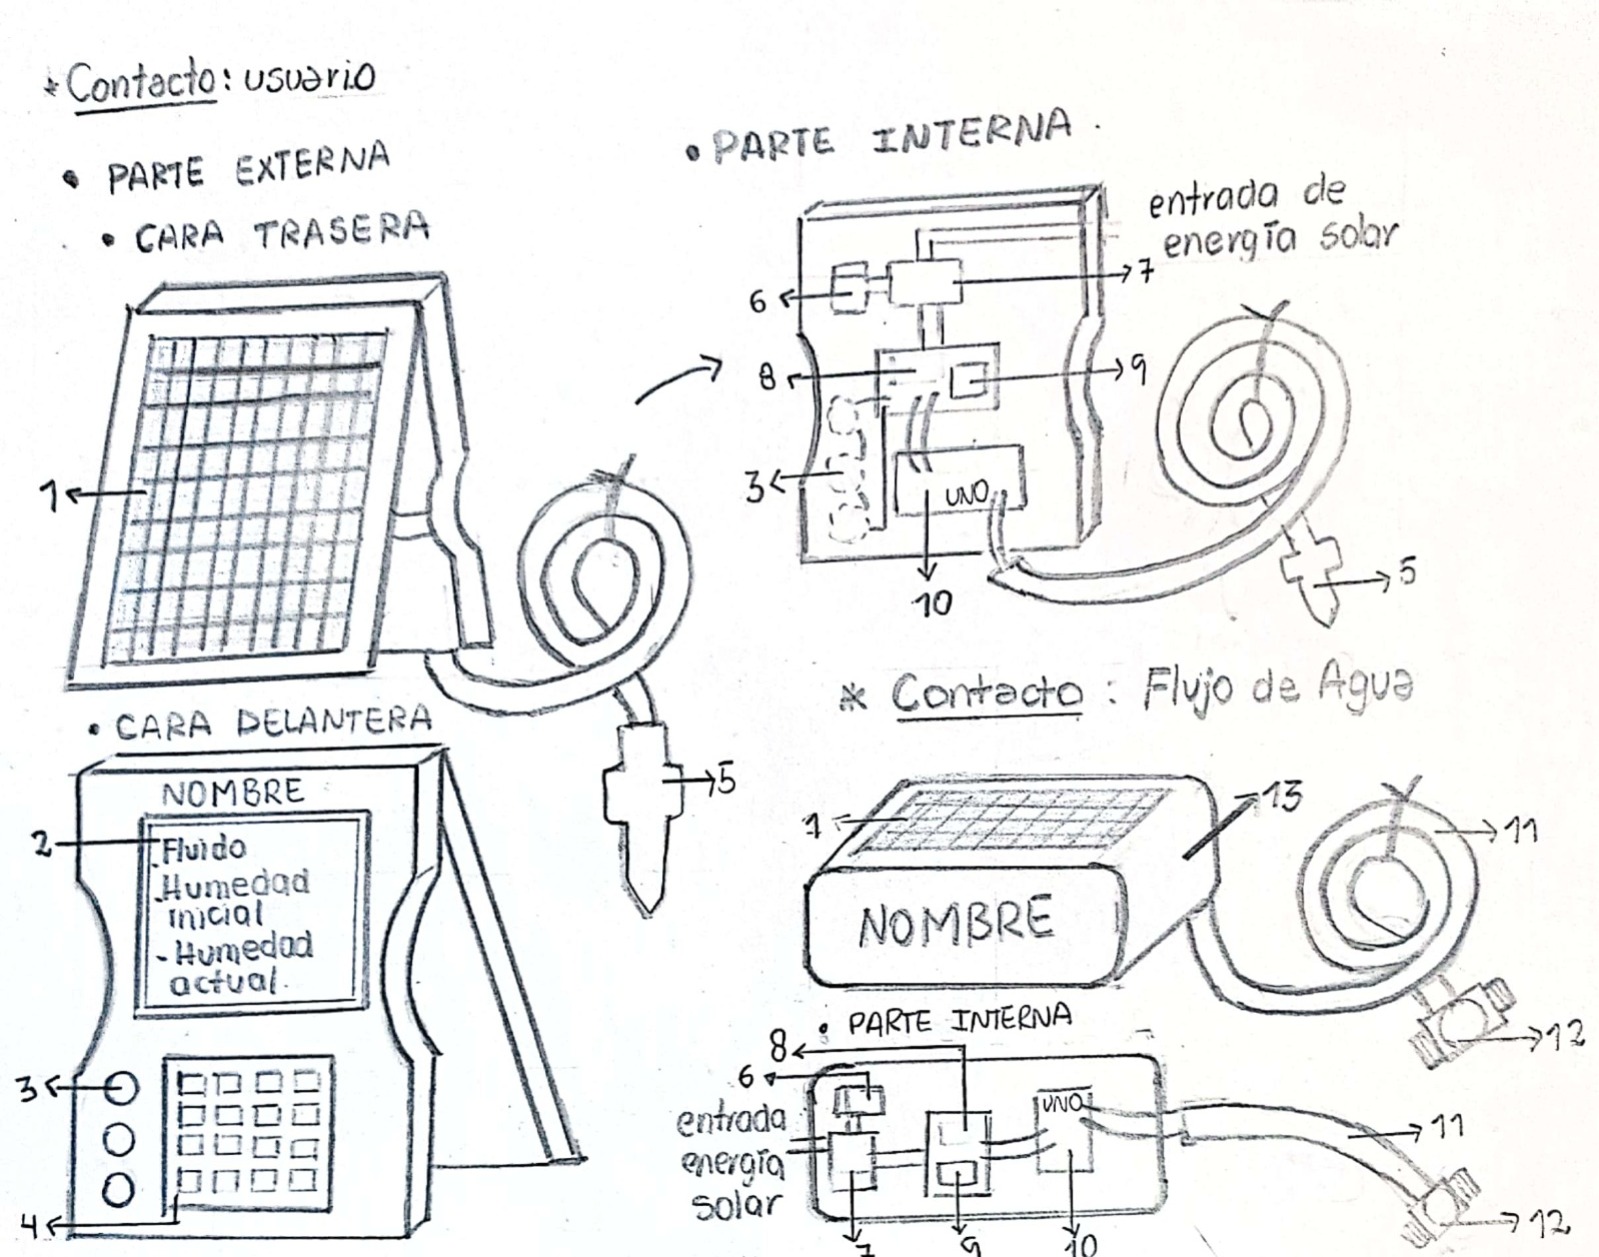 * Contacto: usuario
• PARTE EXTERNA
• CARA TRASERA
1
5
• CARA DELANTERA
NOMBRE
2
- Fluido
- Humedad
inicial
- Humedad
actual.
3
4
• PARTE INTERNA.
entrada de
energía solar
6
7
8
9
3
UNO
10
5
* Contacto: Flujo de Agua
1
13
11
NOMBRE
12
• PARTE INTERNA
8
6
entrada
energía
solar
UNO
11
12
7
9
10